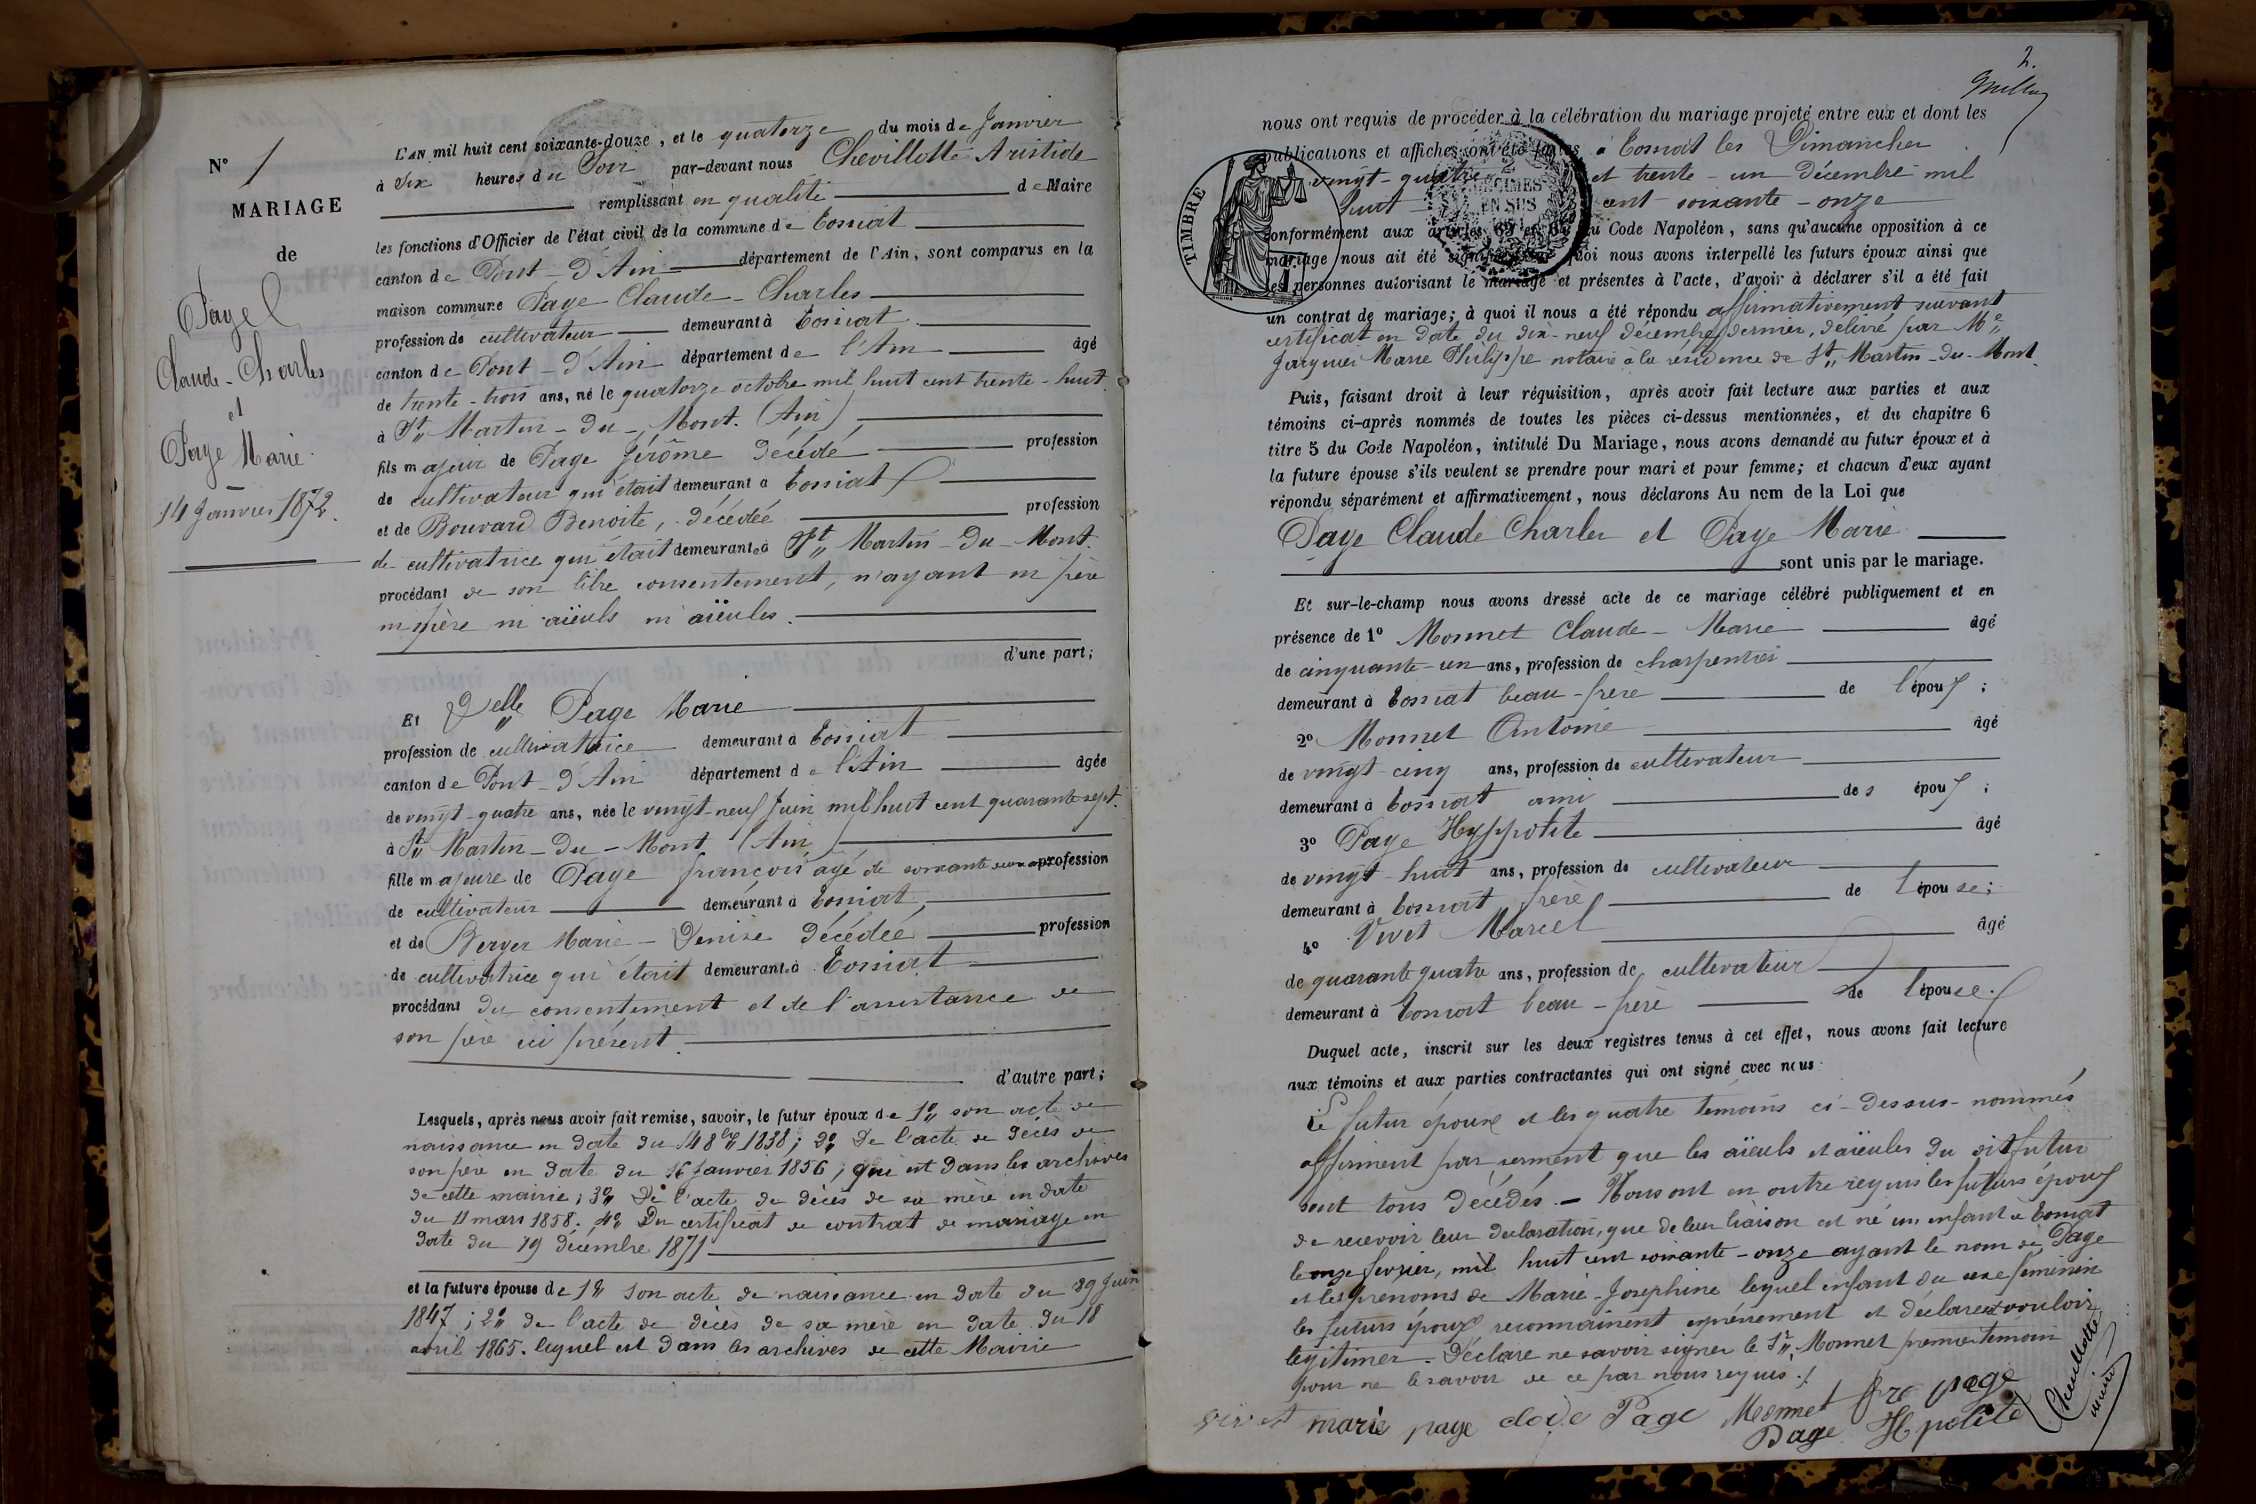 N° 1
MARIAGE
de
Page
Claude-Charles
et
Page Marie
14 Janvier 1872.
L'AN mil huit cent soixante-douze, et le quatorze du mois de Janvier
à Six heures du Soir par-devant nous Chevillotte Aristide
remplissant en qualité de Maire
les fonctions d'Officier de l'état civil de la commune de Tossiat
canton de Pont-d'Ain département de l'Ain, sont comparus en la
maison commune Page Claude-Charles
profession de cultivateur demeurant à Tossiat
canton de Pont-d'Ain département de l'Ain âgé
de trente-trois ans, né le quatorze octobre mil huit cent trente-huit
à St Martin-du-Mont. (Ain)
fils majeur de Page Jérôme décédé profession
de cultivateur qui était demeurant à Tossiat
et de Bouvard Benoîte, décédée profession
de cultivatrice qui était demeurante à St Martin-du-Mont.
procédant de son libre consentement, n'ayant ni père
ni mère ni aïeuls ni aïeules.
d'une part;
Et Delle Page Marie
profession de cultivatrice demeurant à Tossiat
canton de Pont-d'Ain département de l'Ain âgée
de vingt-quatre ans, née le vingt-neuf Juin mil huit cent quarante-sept.
à St Martin-du-Mont (Ain)
fille majeure de Page françois âgé de soixante ans profession
de cultivateur demeurant à Tossiat,
et de Berger Marie-Denise décédée profession
de cultivatrice qui était demeurante à Tossiat
procédant du consentement et de l'assistance de
son père ici présent.
d'autre part;
Lesquels, après nous avoir fait remise, savoir, le futur époux de 1° son acte de
naissance en date du 14 8bre 1838; 2° De l'acte de décès de
son père en date du 16 Janvier 1856, qui est dans les archives
de cette mairie; 3° De l'acte de décès de sa mère en date
du 11 mars 1858. 4° Du certificat de contrat de mariage en
date du 19 décembre 1871
et la future épouse de 1° son acte de naissance en date du 29 Juin
1847; 2° de l'acte de décès de sa mère en date du 18
avril 1865. lequel est dans les archives de cette Mairie
2.
nous ont requis de procéder à la célébration du mariage projeté entre eux et dont les
publications et affiches ont été faites, à Tossiat les Dimanches
vingt-quatre et trente-un décembre mil
huit cent soixante-onze
TIMBRE
2
DÉCIMES
EN SUS
conformément aux articles 63 et 64 du Code Napoléon, sans qu'aucune opposition à ce
mariage nous ait été signifiée quoi nous avons interpellé les futurs époux ainsi que
les personnes autorisant le mariage et présentes à l'acte, d'avoir à déclarer s'il a été fait
un contrat de mariage; à quoi il nous a été répondu affirmativement suivant
certificat en date du dix-neuf décembre dernier, délivré par Me
Jarquier Marie Philippe notaire à la résidence de St Martin-du-Mont.
Puis, faisant droit à leur réquisition, après avoir fait lecture aux parties et aux
témoins ci-après nommés de toutes les pièces ci-dessus mentionnées, et du chapitre 6
titre 5 du Code Napoléon, intitulé Du Mariage, nous avons demandé au futur époux et à
la future épouse s'ils veulent se prendre pour mari et pour femme; et chacun d'eux ayant
répondu séparément et affirmativement, nous déclarons Au nom de la Loi que
Page Claude Charles et Page Marie
sont unis par le mariage.
Et sur-le-champ nous avons dressé acte de ce mariage célébré publiquement et en
présence de 1° Monnet Claude-Marie âgé
de cinquante-un ans, profession de charpentier
demeurant à Tossiat beau-frère de l'époux;
2° Monnet Antoine âgé
de vingt-cinq ans, profession de cultivateur
demeurant à Tossiat ami des époux;
3° Page Hyppolite âgé
de vingt-huit ans, profession de cultivateur
demeurant à Tossiat frère de l'épouse;
4° Vivet Marcel âgé
de quarante quatre ans, profession de cultivateur
demeurant à Tossiat beau-frère de l'épouse.
Duquel acte, inscrit sur les deux registres tenus à cet effet, nous avons fait lecture
aux témoins et aux parties contractantes qui ont signé avec nous.
Le futur époux et les quatre témoins ci-dessus-nommés
affirment par serment que les aïeuls et aïeules du dit futur
sont tous décédés. — Nous ont en outre requis les futurs époux
de recevoir leur déclaration, que de leur liaison est né un enfant à Tossiat
le onze février, mil huit cent soixante-onze ayant le nom de Page
et les prénoms de Marie-Josephine lequel enfant du sexe féminin
les futurs époux reconnaissent expressément et déclarent vouloir
légitimer. Déclare ne savoir signer le Sr Monnet premier témoin
pour ne le savoir de ce par nous requis.
vivet marie page clode Page Monnet fze page
Page Hpolite
Chevillotte
maire